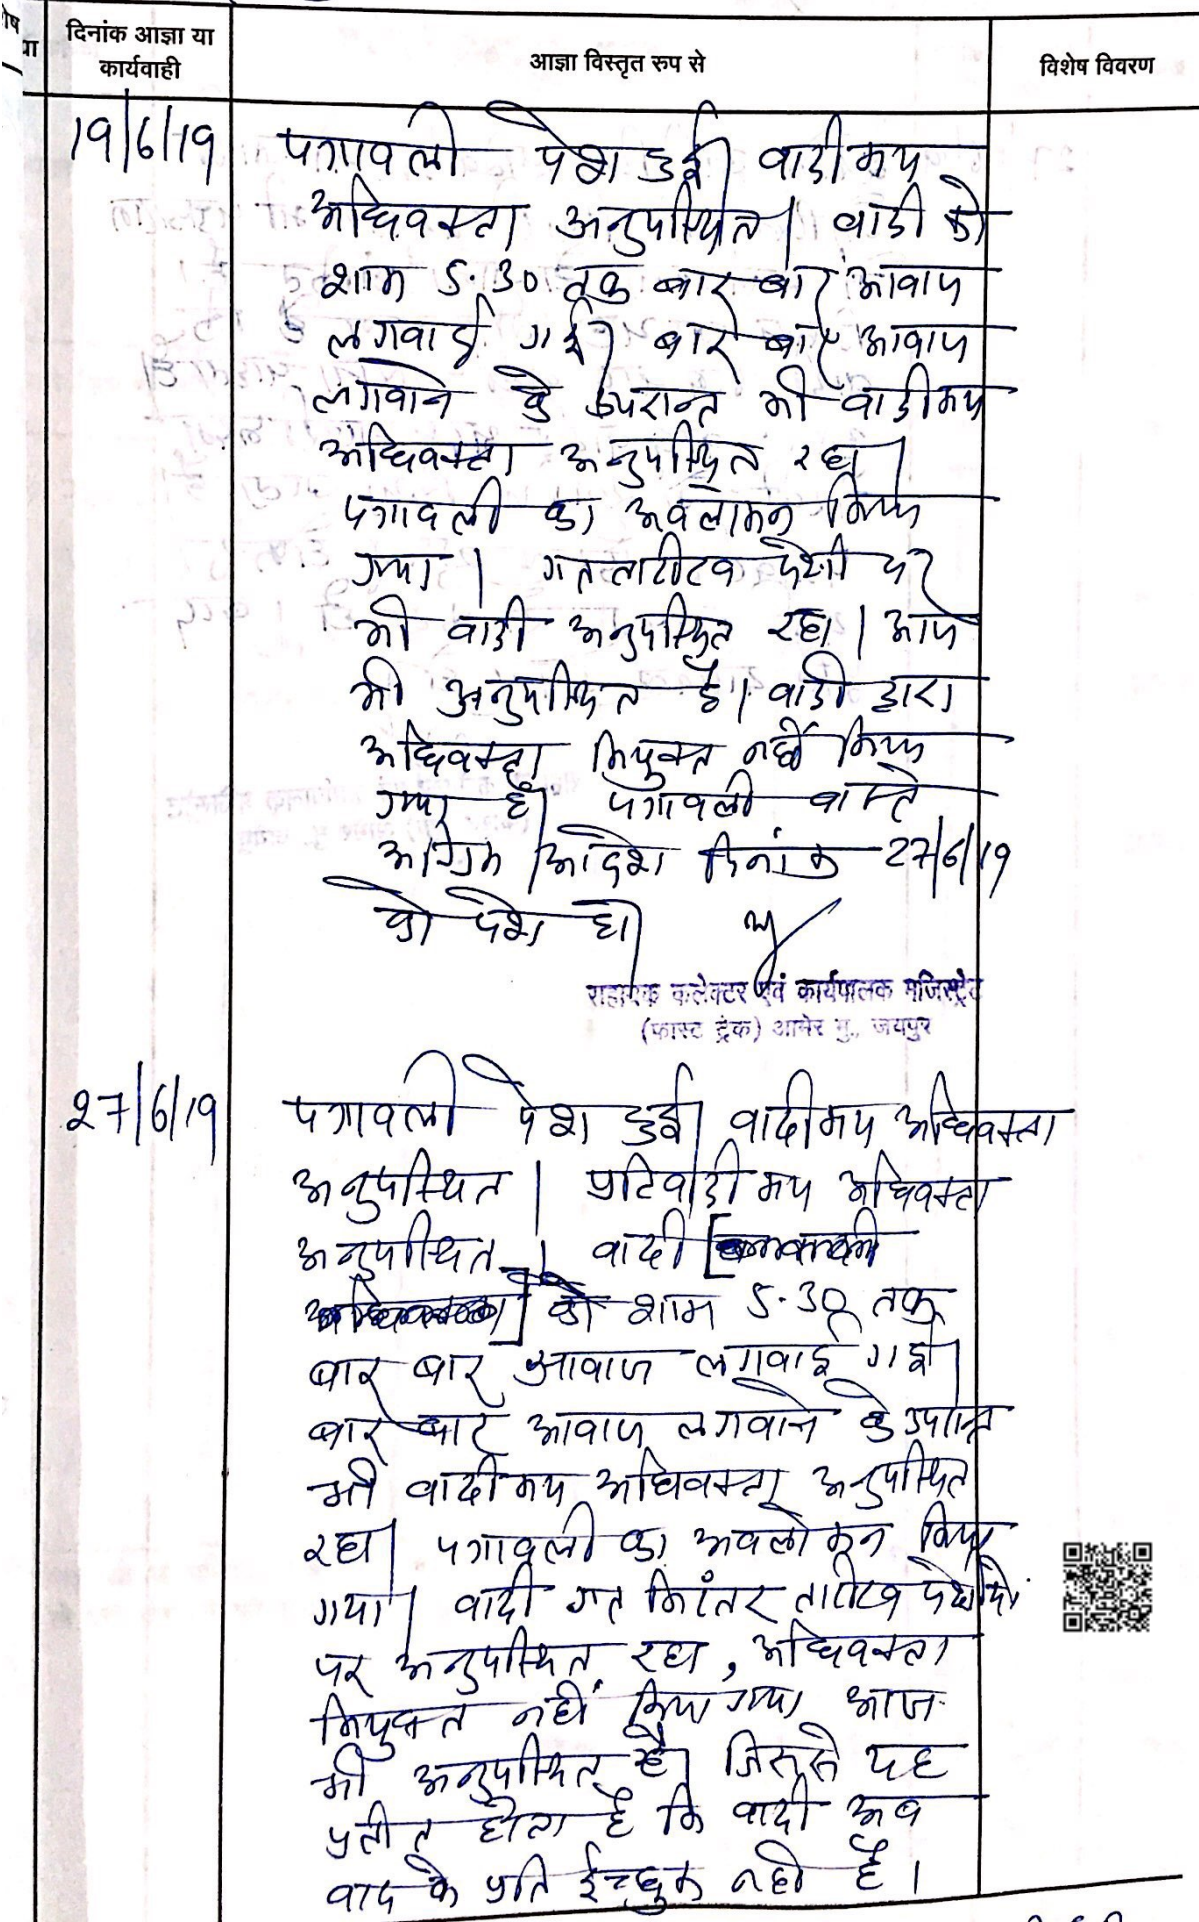 दिनांक आज्ञा या
कार्यवाही
आज्ञा विस्तृत रुप से
विशेष विवरण
19/6/19
पत्रावली पेश हुई। वादी मय
अधिवक्ता अनुपस्थित। वादी को
शाम 5.30 तक बार बार आवाज
लगवाई गई। बार बार आवाज
लगवाने के उपरान्त भी वादी मय
अधिवक्ता अनुपस्थित रहा।
पत्रावली का अवलोकन किया
गया। गत तारीख पेशी पर
भी वादी अनुपस्थित रहा। आज
भी अनुपस्थित है। वादी द्वारा
अधिवक्ता नियुक्त नहीं किया
गया है। पत्रावली वास्ते
अग्रिम आदेश दिनांक 27/6/19
को पेश हो।
सहायक कलेक्टर एवं कार्यपालक मजिस्ट्रेट
(फास्ट ट्रेक) आमेर मु., जयपुर
27/6/19
पत्रावली पेश हुई। वादी मय अधिवक्ता
अनुपस्थित। प्रतिवादी मय अधिवक्ता
अनुपस्थित। वादी
को शाम 5.30 तक
बार बार आवाज लगवाई गई।
बार बार आवाज लगवाने के उपरान्त
भी वादी मय अधिवक्ता अनुपस्थित
रहा। पत्रावली का अवलोकन किया
गया। वादी गत निरंतर तारीख पेशीयों
पर अनुपस्थित रहा, अधिवक्ता
नियुक्त नहीं किया गया आज
भी अनुपस्थित है। जिससे यह
प्रतीत होता है कि वादी अब
वाद के प्रति ईच्छुक नही है।